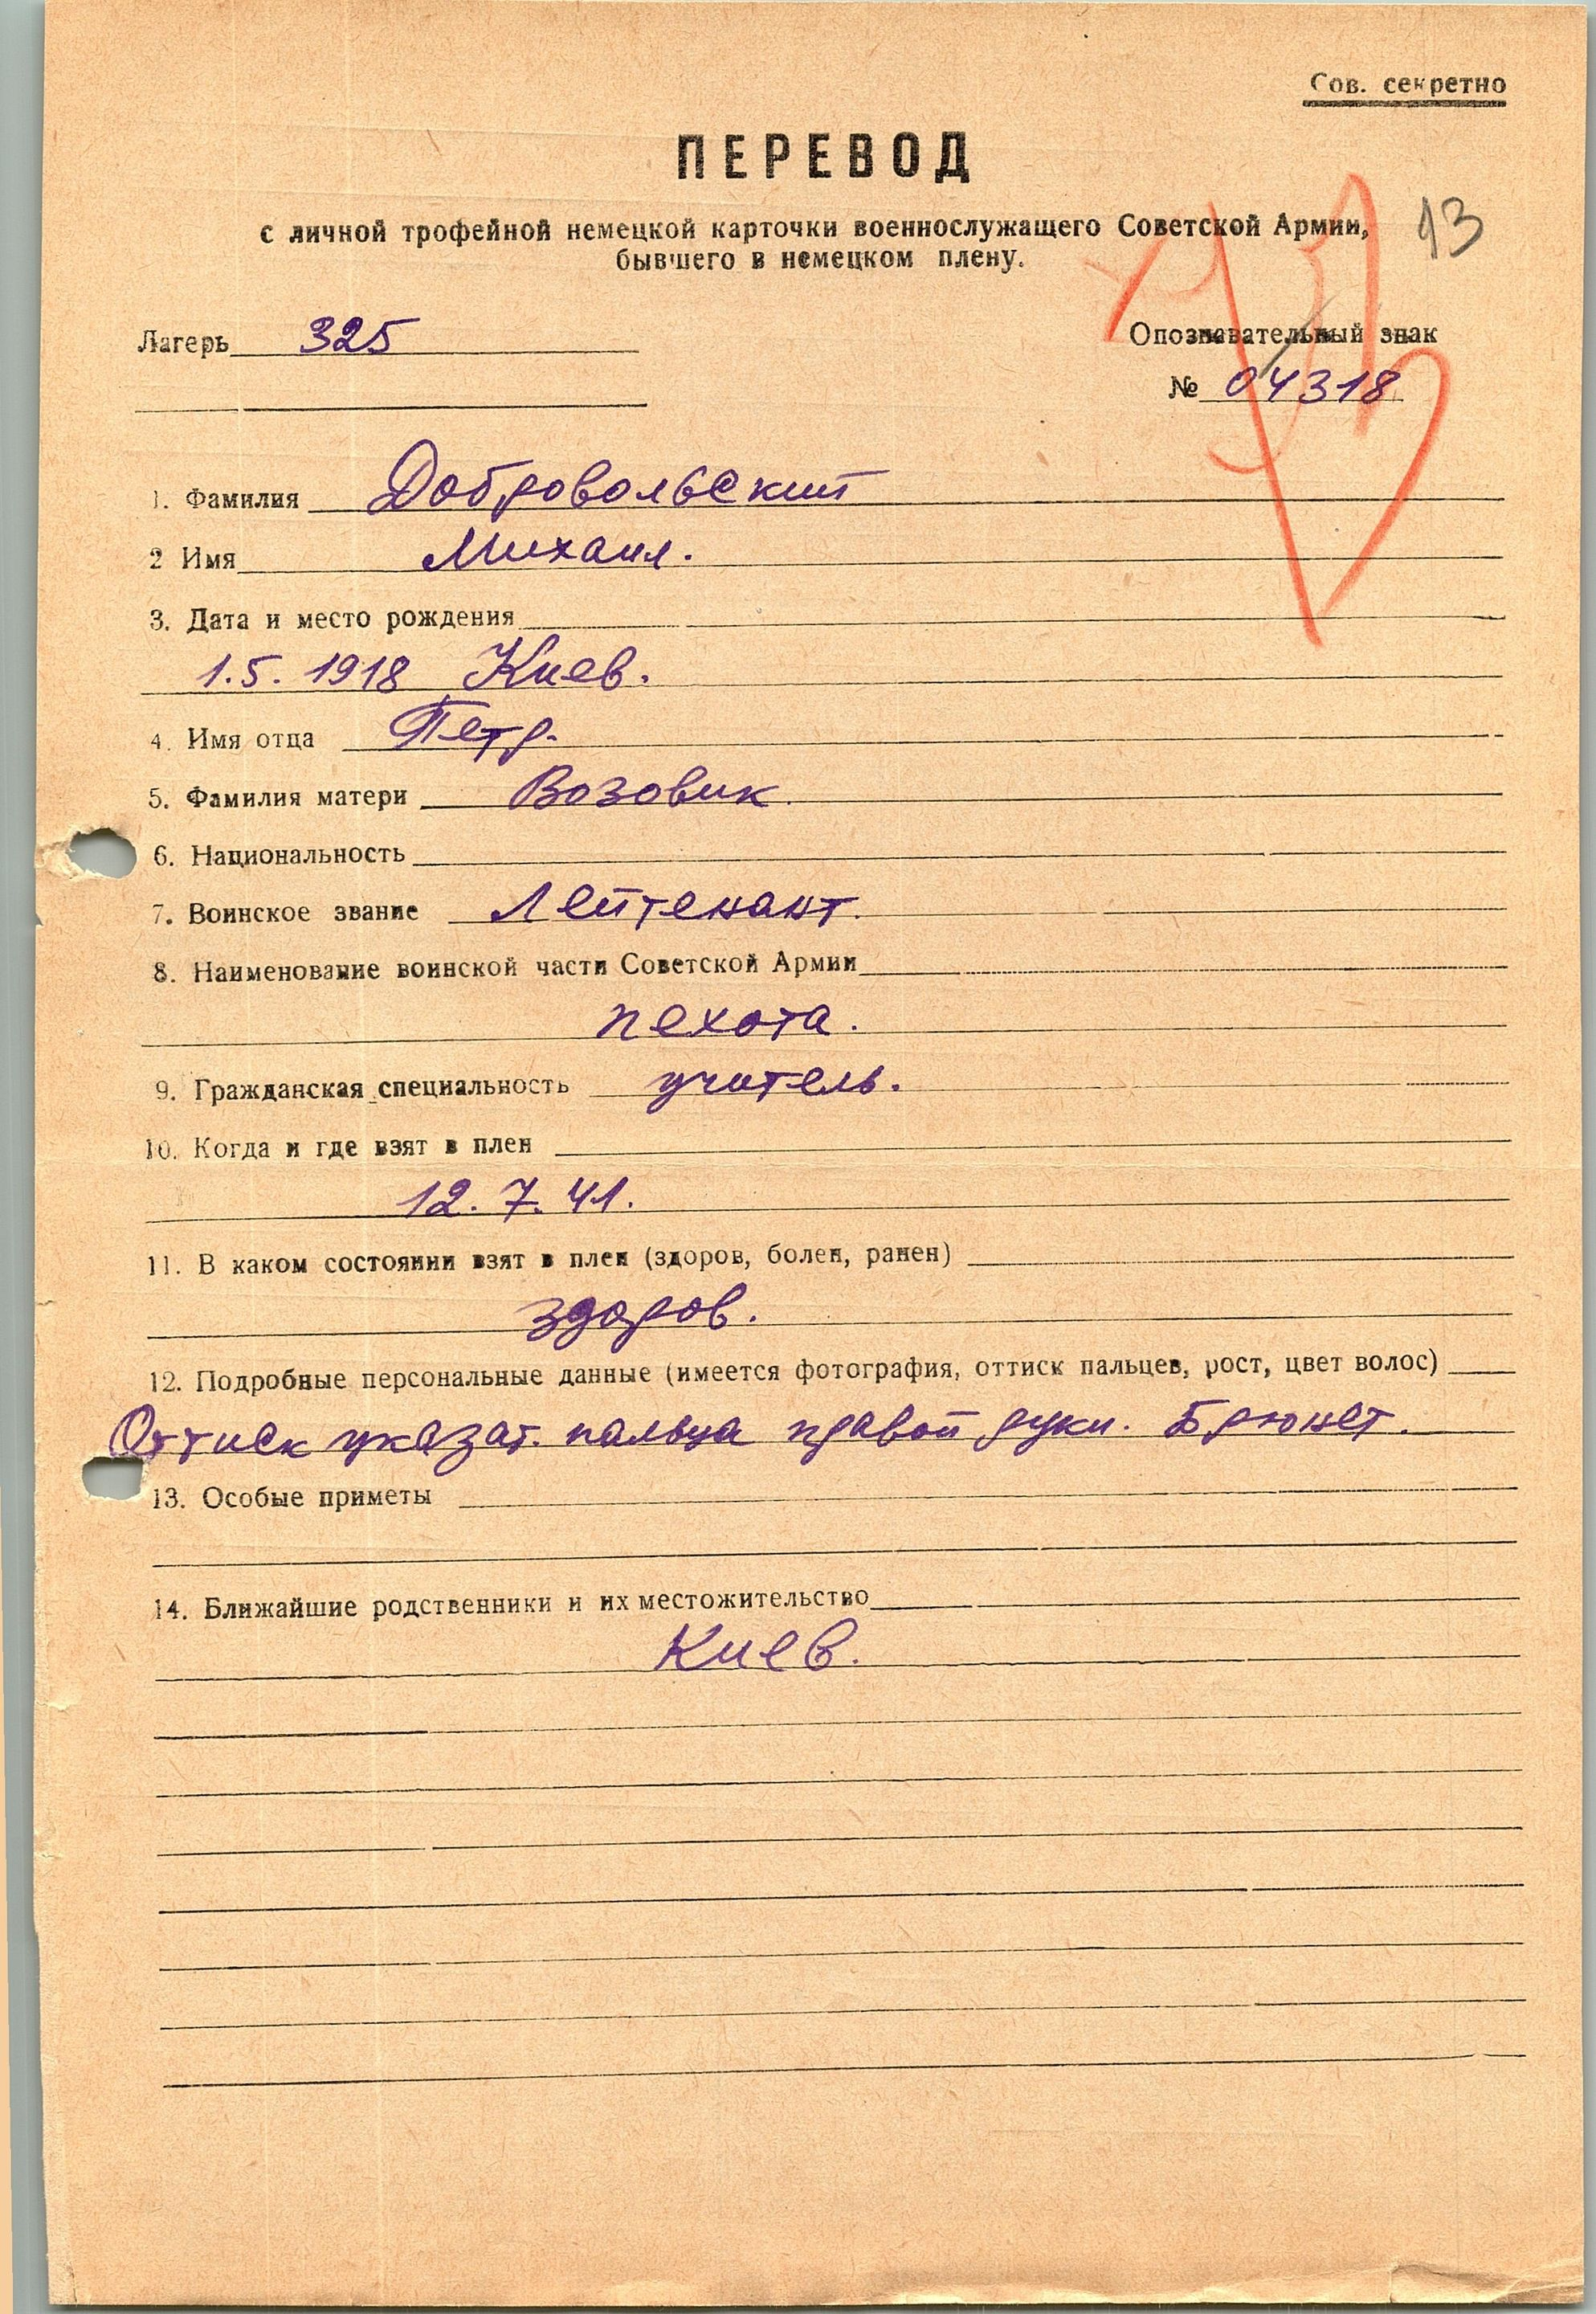 Сов. секретно
ПЕРЕВОД
с личной трофейной немецкой карточки военнослужащего Советской Армии,
13
бывшего в немецком плену.
Лагерь 325
Опознавательный знак
№ 04318
1. Фамилия Добровольский
2 Имя Михаил.
3. Дата и место рождения
1.5. 1918 Киев.
4. Имя отца Петр.
5. Фамилия матери Возовик.
6. Национальность
7. Воинское звание Лейтенант.
8. Наименование воинской части Советской Армии
пехота.
9. Гражданская специальность учитель.
10. Когда и где взят в плен
12. 7. 41.
11. В каком состоянии взят в плен (здоров, болен, ранен)
здоров.
12. Подробные персональные данные (имеется фотография, оттиск пальцев, рост, цвет волос)
Оттиск указат. пальца правой руки. Брюнет.
13. Особые приметы
14. Ближайшие родственники и их местожительство
Киев.